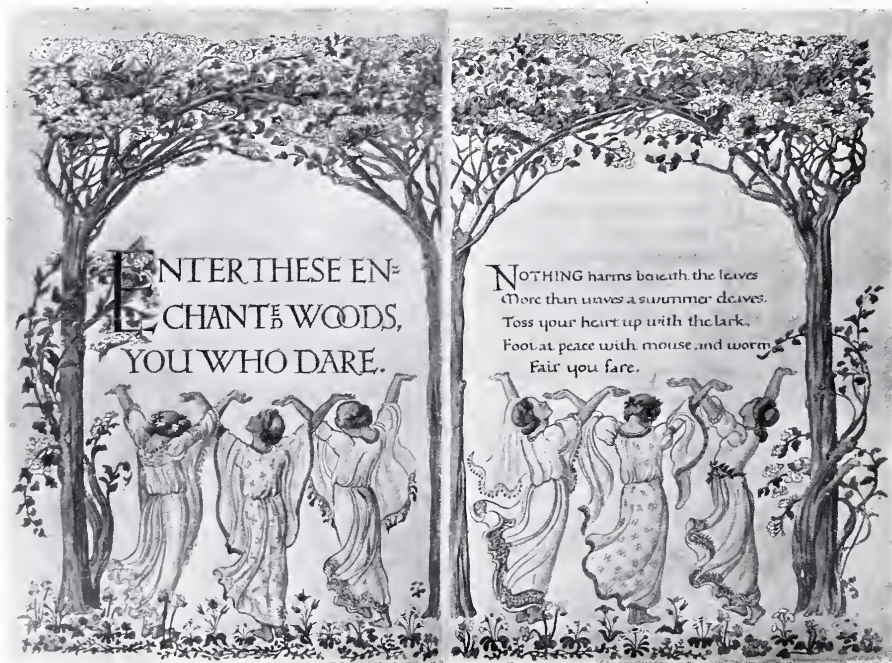 ENTER THESE EN=
CHANTED WOODS,
YOU WHO DARE.
NOTHING harms beneath the leaves
More than waves a swimmer cleaves.
Toss your heart up with the lark,
Foot at peace with mouse and worm
Fair you fare.